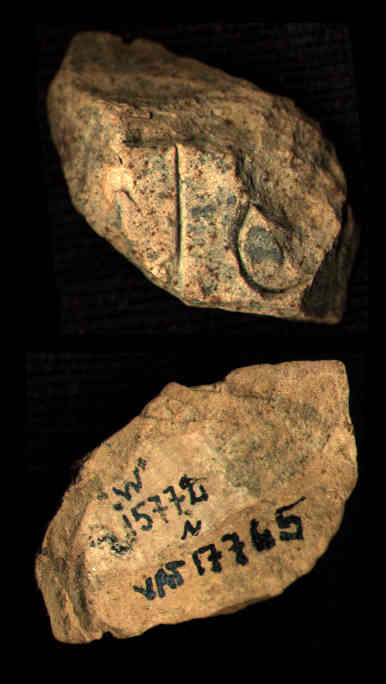 "W"
15772
N
VAT 17765